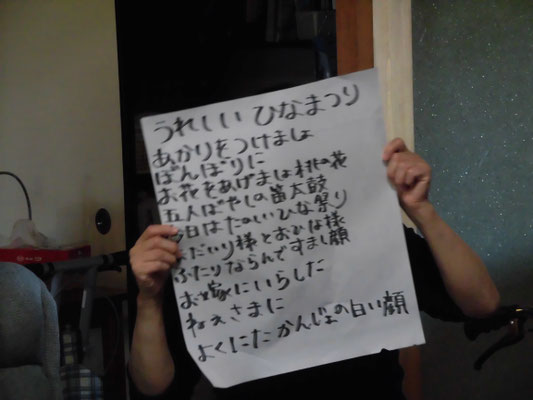 うれしい ひなまつり
あかりをつけましょ
ぼんぼりに
お花をあげましょ 桃の花
五人ばやしの笛太鼓
今日はたのしいひな祭り
おだいり様とおひな様
ふたりならんですまし顔
お嫁にいらした
ねえさまに
よくにた かんじょの白い顔